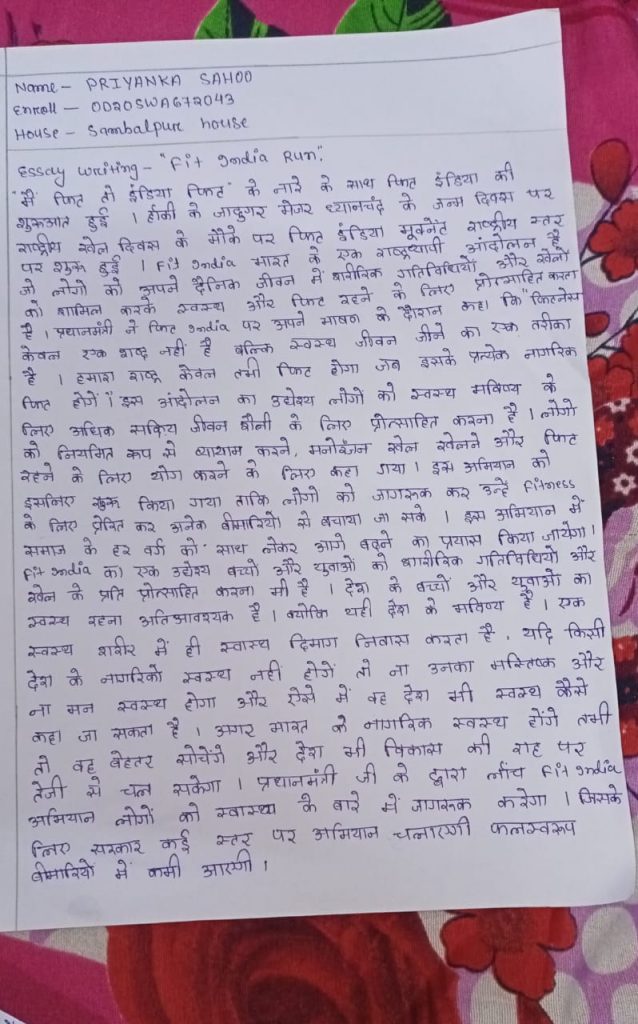 Name - PRIYANKA SAHOO
Enroll - OD20SWA672043
House - Sambalpur house
Essay writing - "Fit India Run".
"मैं फिट तो इंडिया फिट" के नारे के साथ फिट इंडिया की
शुरूआत हुई । हॉकी के जादुगर मेजर ध्यानचंद के जन्म दिवस पर
राष्ट्रीय खेल दिवस के मौके पर फिट इंडिया मूवमेंट राष्ट्रीय स्तर
पर शुरू हुई । Fit India भारत के एक राष्ट्रव्यापी आंदोलन है
जो लोगों को अपने दैनिक जीवन में शारीरिक गतिविधियों और खेलो
को शामिल करके स्वस्थ और फिट रहने के लिए प्रोत्साहित करता
है । प्रधानमंत्री ने फिट India पर अपने भाषण के दौरान कहा कि "फिटनेस
केवल एक शब्द नहीं है बल्कि स्वस्थ जीवन जीने का एक तरीका
है । हमारा राष्ट्र केवल तभी फिट होगा जब इसके प्रत्येक नागरिक
फिट होगें" । इस आंदोलन का उद्येश्य लोगों को स्वस्थ भविष्य के
लिए अधिक सक्रिय जीवन शैली के लिए प्रोत्साहित करना है । लोगो
को नियमित रूप से व्यायाम करने, मनोरंजन खेल खेलने और फिट
रहने के लिए योग करने के लिए कहा गया । इस अभियान को
इसलिए शुरू किया गया ताकि लोगों को जागरूक कर उन्हें Fitness
के लिए प्रेरित कर अनेक बीमारियो से बचाया जा सके । इस अभियान में
समाज के हर वर्ग को साथ लेकर आगे बढ़ने का प्रयास किया जायेगा ।
Fit India का एक उद्येश्य बच्चो और युवाओं को शारीरिक गतिविधियों और
खेल के प्रति प्रोत्साहित करना भी है । देश के बच्चों और युवाओं का
स्वस्थ रहना अतिआवश्यक है । क्योकि यही देश के भविष्य है । एक
स्वस्थ शरीर में ही स्वास्थ दिमाग निवास करता है . यदि किसी
देश के नागरिको स्वस्थ नहीं होगें तो ना उनका मस्तिष्क और
ना मन स्वस्थ होगा और ऐसे में वह देश भी स्वस्थ कैसे
कहा जा सकता है । अगर भारत के नागरिक स्वस्थ होंगे तभी
तो वह बेहतर सोचेंगे और देश भी विकास की राह पर
तेजी से चल सकेगा । प्रधानमंत्री जी के द्वारा लॉंच Fit India
अभियान लोगों को स्वास्थ्य के बारे में जागरूक करेगा । जिसके
लिए सरकार कई स्तर पर अभियान चलाएगी फलस्वरूप
बीमारियो में कमी आएगी ।